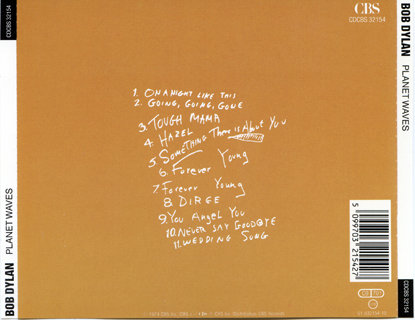 CDCBS 32154
CBS
CDCBS 32154
BOB DYLAN PLANET WAVES
BOB DYLAN PLANET WAVES
1. ON A NIGHT LIKE THIS
2. GOING, GOING, GONE
3. TOUGH MAMA
4. HAZEL
5. SOMETHING There is About You
6. Forever Young
7. Forever Young
8. DIRGE
9. You Angel You
10. NEVER SAY GOODBYE
11. WEDDING SONG
5 099703 215427
CDCBS 32154